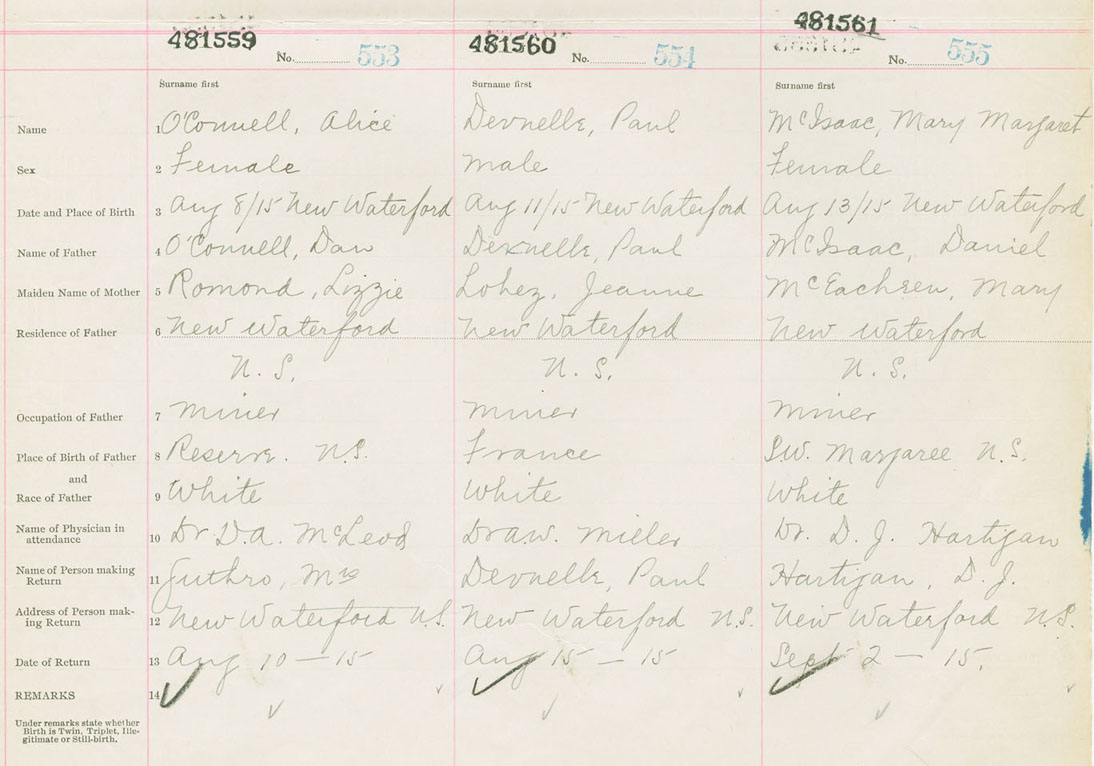 481559 481560 481561
No. 553 No. 554 No. 555
Surname first Surname first Surname first
Name 1 O'Connell, Alice Devnelle, Paul McIsaac, Mary Margaret
Sex 2 Female male Female
Date and Place of Birth 3 Aug 8/15 New Waterford Aug 11/15 New Waterford Aug 13/15 New Waterford
Name of Father 4 O'Connell, Dan Devnelle, Paul McIsaac, Daniel
Maiden Name of Mother 5 Romond, Lizzie Lohez, Jeanne McEachren, Mary
Residence of Father 6 New Waterford New Waterford New Waterford
N. S. N. S. N. S.
Occupation of Father 7 miner miner miner
Place of Birth of Father 8 Reserve. N.S. France S.W. Margaree N.S.
and
Race of Father 9 White White White
Name of Physician in
attendance 10 Dr. D.A. McLeod Dr A.W. Miller Dr. D. J. Hartigan
Name of Person making
Return 11 Guthro, Mrs Devnelle, Paul Hartigan, D.J.
Address of Person mak-
ing Return 12 New Waterford N.S. New Waterford N.S. New Waterford N.S.
Date of Return 13 Aug 10 — 15 Aug 15 — 15 Sept 2 — 15.
REMARKS 14
Under remarks state whether
Birth is Twin, Triplet, Ille-
gitimate or Still-birth.